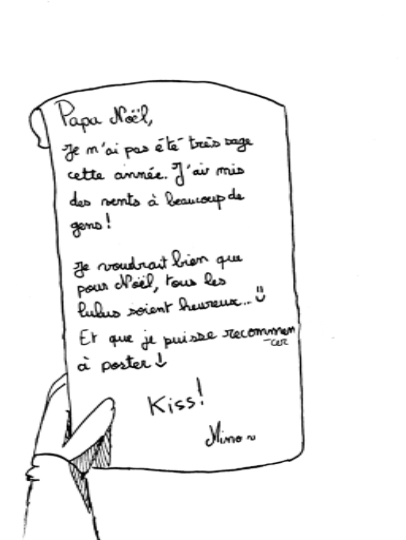 Papa Noël,
Je n'ai pas été très sage
cette année. J'air mis
des vents à beaucoup de
gens!
Je voudrait bien que
pour Noël, tous les
lulus soient heureux... :)
Et que je puisse recommen
-cer
à poster ↓
Kiss!
Mino~